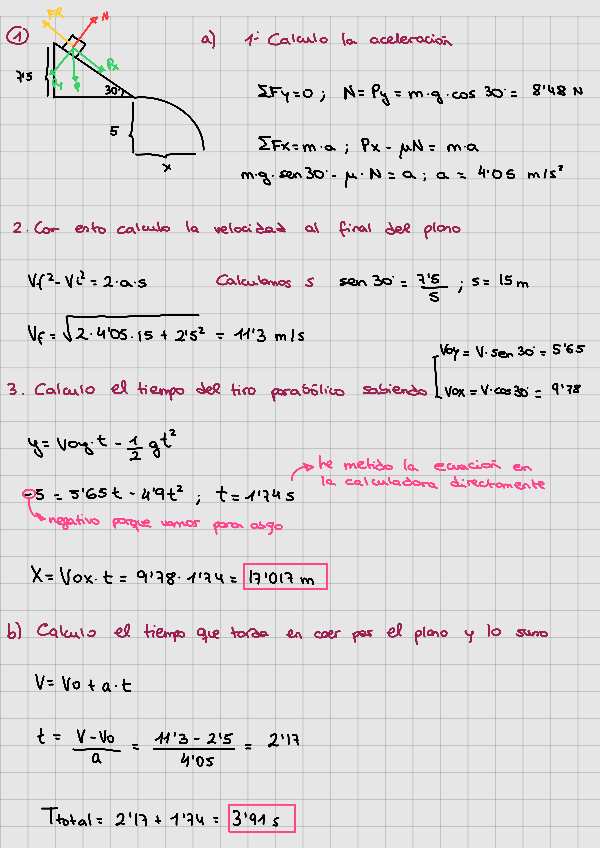 1
FR
N
Px
Py
P
7'5
30°
5
x
a) 1. Calculo la aceleración
ΣFy=0 ; N=Py = m·g·cos 30° = 8'48 N
ΣFx=m·a ; Px - μN = m·a
m·g·sen30° - μ·N = a ; a = 4'05 m/s²
2. Con esto calculo la velocidad al final del plano
Vf² - Vi² = 2·a·s Calculamos s sen 30° = 7'5/s ; s = 15 m
Vf = √2·4'05·15 + 2'5² = 11'3 m/s
3. Calculo el tiempo del tiro parabólico sabiendo
Voy = V·sen 30° = 5'65
Vox = V·cos 30° = 9'78
y = Voy·t - 1/2 gt²
-5 = 5'65t - 4'9t² ; t = 1'74 s
he metido la ecuación en
la calculadora directamente
negativo porque vamos para abajo
X = Vox·t = 9'78·1'74 = 17'017 m
b) Calculo el tiempo que tarda en caer por el plano y lo sumo
V = Vo + a·t
t = V-Vo/a = 11'3 - 2'5/4'05 = 2'17
Ttotal = 2'17 + 1'74 = 3'91 s